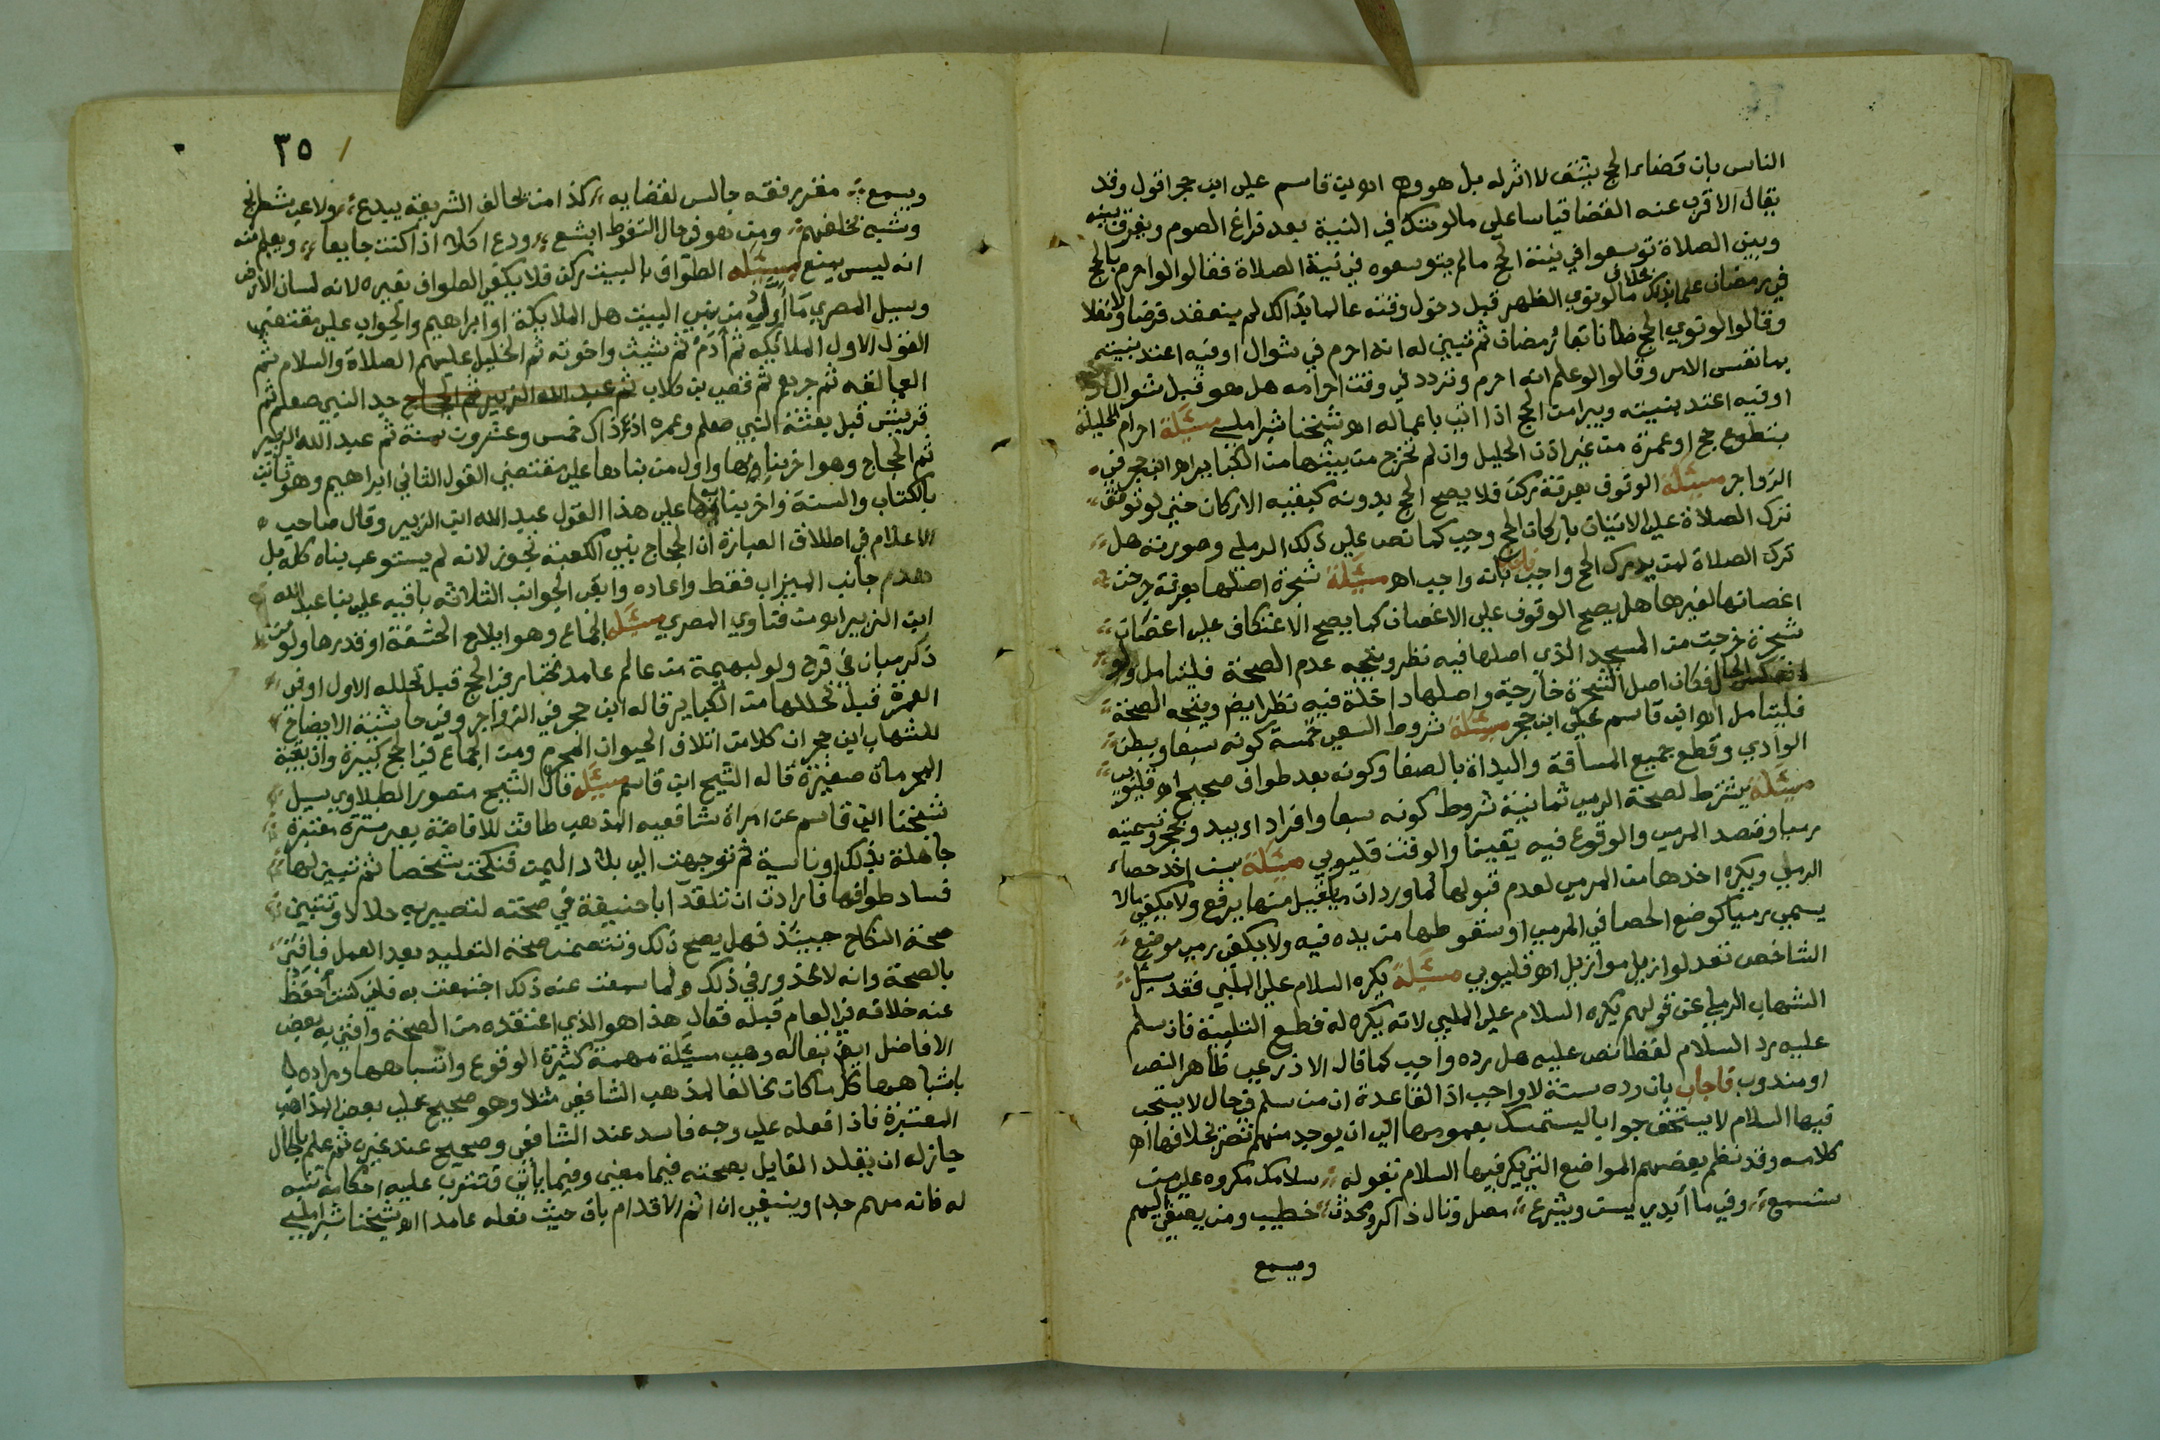 الناس بان قضاء الحج بتشف لا اثر له بل هو وهم اه ابن قاسم على ابن حجر اقول وقد
يقال الاقرب عنه القضا قياسا على مالو شك في النية بعد فراغ الصوم ويفرق بينه
وبين الصلاة توسعوا في نية الحج مالم يتوسعوه في نية الصلاة فقالوا لو احرم بالحج
في رمضان علما بذلك بخلاف مالو نوي الظهر قبل دخول وقته عالما بذالك لم ينعقد فرضا ولا نفلا
وقالوا لو نوي الحج ظانا بقا رمضان ثم تبين له انه احرم في شوال اوفيه اعتد بنيته
بما نفس الامر وقالوا لو علم انه احرم وتردد في وقت احرامه هل هو قبل شوال
اوفيه اعتد بنيته ويبرا من الحج اذا اتى باعماله اه شيخنا شبراملسي مسئلة احرام الحليلة
بتطوع حج او عمرة من غير اذن الحليل وان لم تخرج من بيتها من الكبايراه ابن حجر في
الزواجر مسئلة الوقوف بعرفة ركن فلا يصح الحج بدونه كبقية الاركان حتى لو توقف
ترك الصلاة على الاتيان باركان الحج وجب كما نص على ذلك الرملي وصورته هل
ترك الصلاة لمن يدرك الحج واجب فاجاب بانه واجب اه مسئلة شجرة اصلها بعرفة خرجت
اغصانها لغيرها هل يصح الوقوف على الاغصان كما يصح الاعتكاف على اغصان
شجرة خرجت من المسجد الذي اصلها فيه نظر ويتجه عدم الصحة فليتامل ولو
انعكس الحال فكان اصل الشجرة خارجة واصلها داخلة فيه نظر ايض ويتجه الصحة
فليتامل اه ابن قاسم على ابن حجر مسئلة شروط السعي خمسة كونه سبعا وبطن
الوادي وقطع جميع المسافة والبداة بالصفا وكونه بعد طواف صحيح اه قليوبي
مسئلة يشترط لصحة الرمي ثمانية شروط كونه سبعا وافراد اه بيد وبحجر وتسميته
رميا وقصد المرمي والوقوع فيه يقينا والوقت قليوبي مسئلة يسن اخذ حصاء
الرملي ويكره اخذها من المرمى لعدم قبولها لما ورد ان ما يقبل منها يرفع ولا يكفي مالا
يسمي رميا كوضع الحصا في المرمى او سقوطها من يده فيه ولا يكفي رمي موضع
الشاخص نعد لو ازيل موازيل اه قليوبي مسئلة يكره السلام على الملبي فقد سئل
الشهاب الرملي عن قولهم يكره السلام على الملبي لانه يكره له قطع التلبية فان سلم
عليه رد السلام لفظا نص عليه هل رده واجب كما قال الاذرعي ظاهر النص
او مندوب فاجاب بان رده سنة لا واجب اذ القاعدة ان من سلم في حال لا يستحب
فيها السلام لا يستحق جوابا ليستمسك بعمومها الى ان يوجد منهم تصريح بخلافها اه
كلامه وقد نظم بعضهم المواضع التي يكره فيها السلام بقوله سلامك مكروه على من
ستسمع وفي ما أبدي يسن ويشرع مصل وتال ذاكر ومحدث خطيب ومن يصغي اليهم
ويسمع
٣٥
ويسمع مقرر فقه جالس لقضايه كذا من يخالف الشريعة يبدع ولاعب شطرنج
وشبه بخلقهم ومن هو في حال التغوط ابشع ودع اكلا اذا كنت جايعا ويعلم منه
انه ليس يمنع مسئلة الطواف بالبيت ركن فلا يكفي الطواف بغيره لانه لسان الارض
وسيل المصري ما اول من بنى البيت هل الملايكة او ابراهيم والجواب على مقتضى
القول الاول الملائكه ثم آدم ثم شيث واخوته ثم الخليل عليهم الصلاة والسلام ثم
العمالقه ثم جرهم ثم قصي بن كلاب ثم عبد الله الزبير ثم الحجاج جد النبي صعلم ثم
قريش قبل بعثة النبي صعلم وعمره اذ ذاك خمس وعشرون سنة ثم عبد الله الزبير
ثم الحجاج وهو اخر بنايها واول من بناها على مقتضى القول الثاني ابراهيم وهو ثابت
بالكتاب والسنة واخر بنايها على هذا القول عبد الله ابن الزبير وقال صاحب
الاعلام في اطلاق العبارة ان الحجاج بنى الكعبة تجوز لانه لم يستوعب بناه كله بل
هدم جانب الميزاب فقط واعاده وابقى الجوانب الثلاثه باقيه على بنا عبد الله
ابن الزبير اه من فتاوي المصري مسئلة الجماع وهو ايلاج الحشفة او قدرها ولو من
ذكر مبان في فرج ولو لبهيمة من عالم عامد مختار في الحج قبل تحلله الاول او في
العمرة قبل تحللها من الكباير قاله ابن حجر في الزواجر وفي حاشية الايضاح
للشهاب ابن حجر ان كلا من اتلاف الحيوان المحرم ومن الجماع في الحج كبيرة وان بقية
المحرمات صغيرة قاله الشيح ابن قاسم مسئلة قال الشيح منصور الطبلاوي سيل
شيخنا ابن قاسم عن امراة شافعيه المذهب طافت للافاضة بغير سترة معتبرة
جاهلة بذلك او ناسية ثم توجهت الى بلاد اليمن فنكحت شخصا ثم تبين لها
فساد طوافها فارادت ان تقلد ابا حنيفة في صحته لتصير به حلالا وتتبين
صحة النكاح حينئذ فهل يصح ذلك وتتضمن صحة التقليد بعد العمل فافتى
بالصحة وانه لا محذور في ذلك ولما سمعت عنه ذلك اجتمعت به فاني كنت احفظ
عنه خلافه في العام قبله فقال هذا هو الذي اعتقده من الصحة وافتى به بعض
الافاضل ايض بتعاله وهي مسئلة مهمة كثيرة الوقوع واشباهها ومراده
باشباهها كل ما كان مخالفا لمذهب الشافعي مثلا وهو صحيح على بعض المذاهب
المعتبرة فاذا فعله على وجه فاسد عند الشافعي وصحيح عند غيره ثم علم بالحال
جاز له ان يقلد القايل بصحته فيما مضى وفيما ياتي فتترتب عليه احكامه تنبه
له فانه مهم جدا وينبغي ان اثم الاقدام باق حيث فعله عامدا اه شيخنا شبراملسي